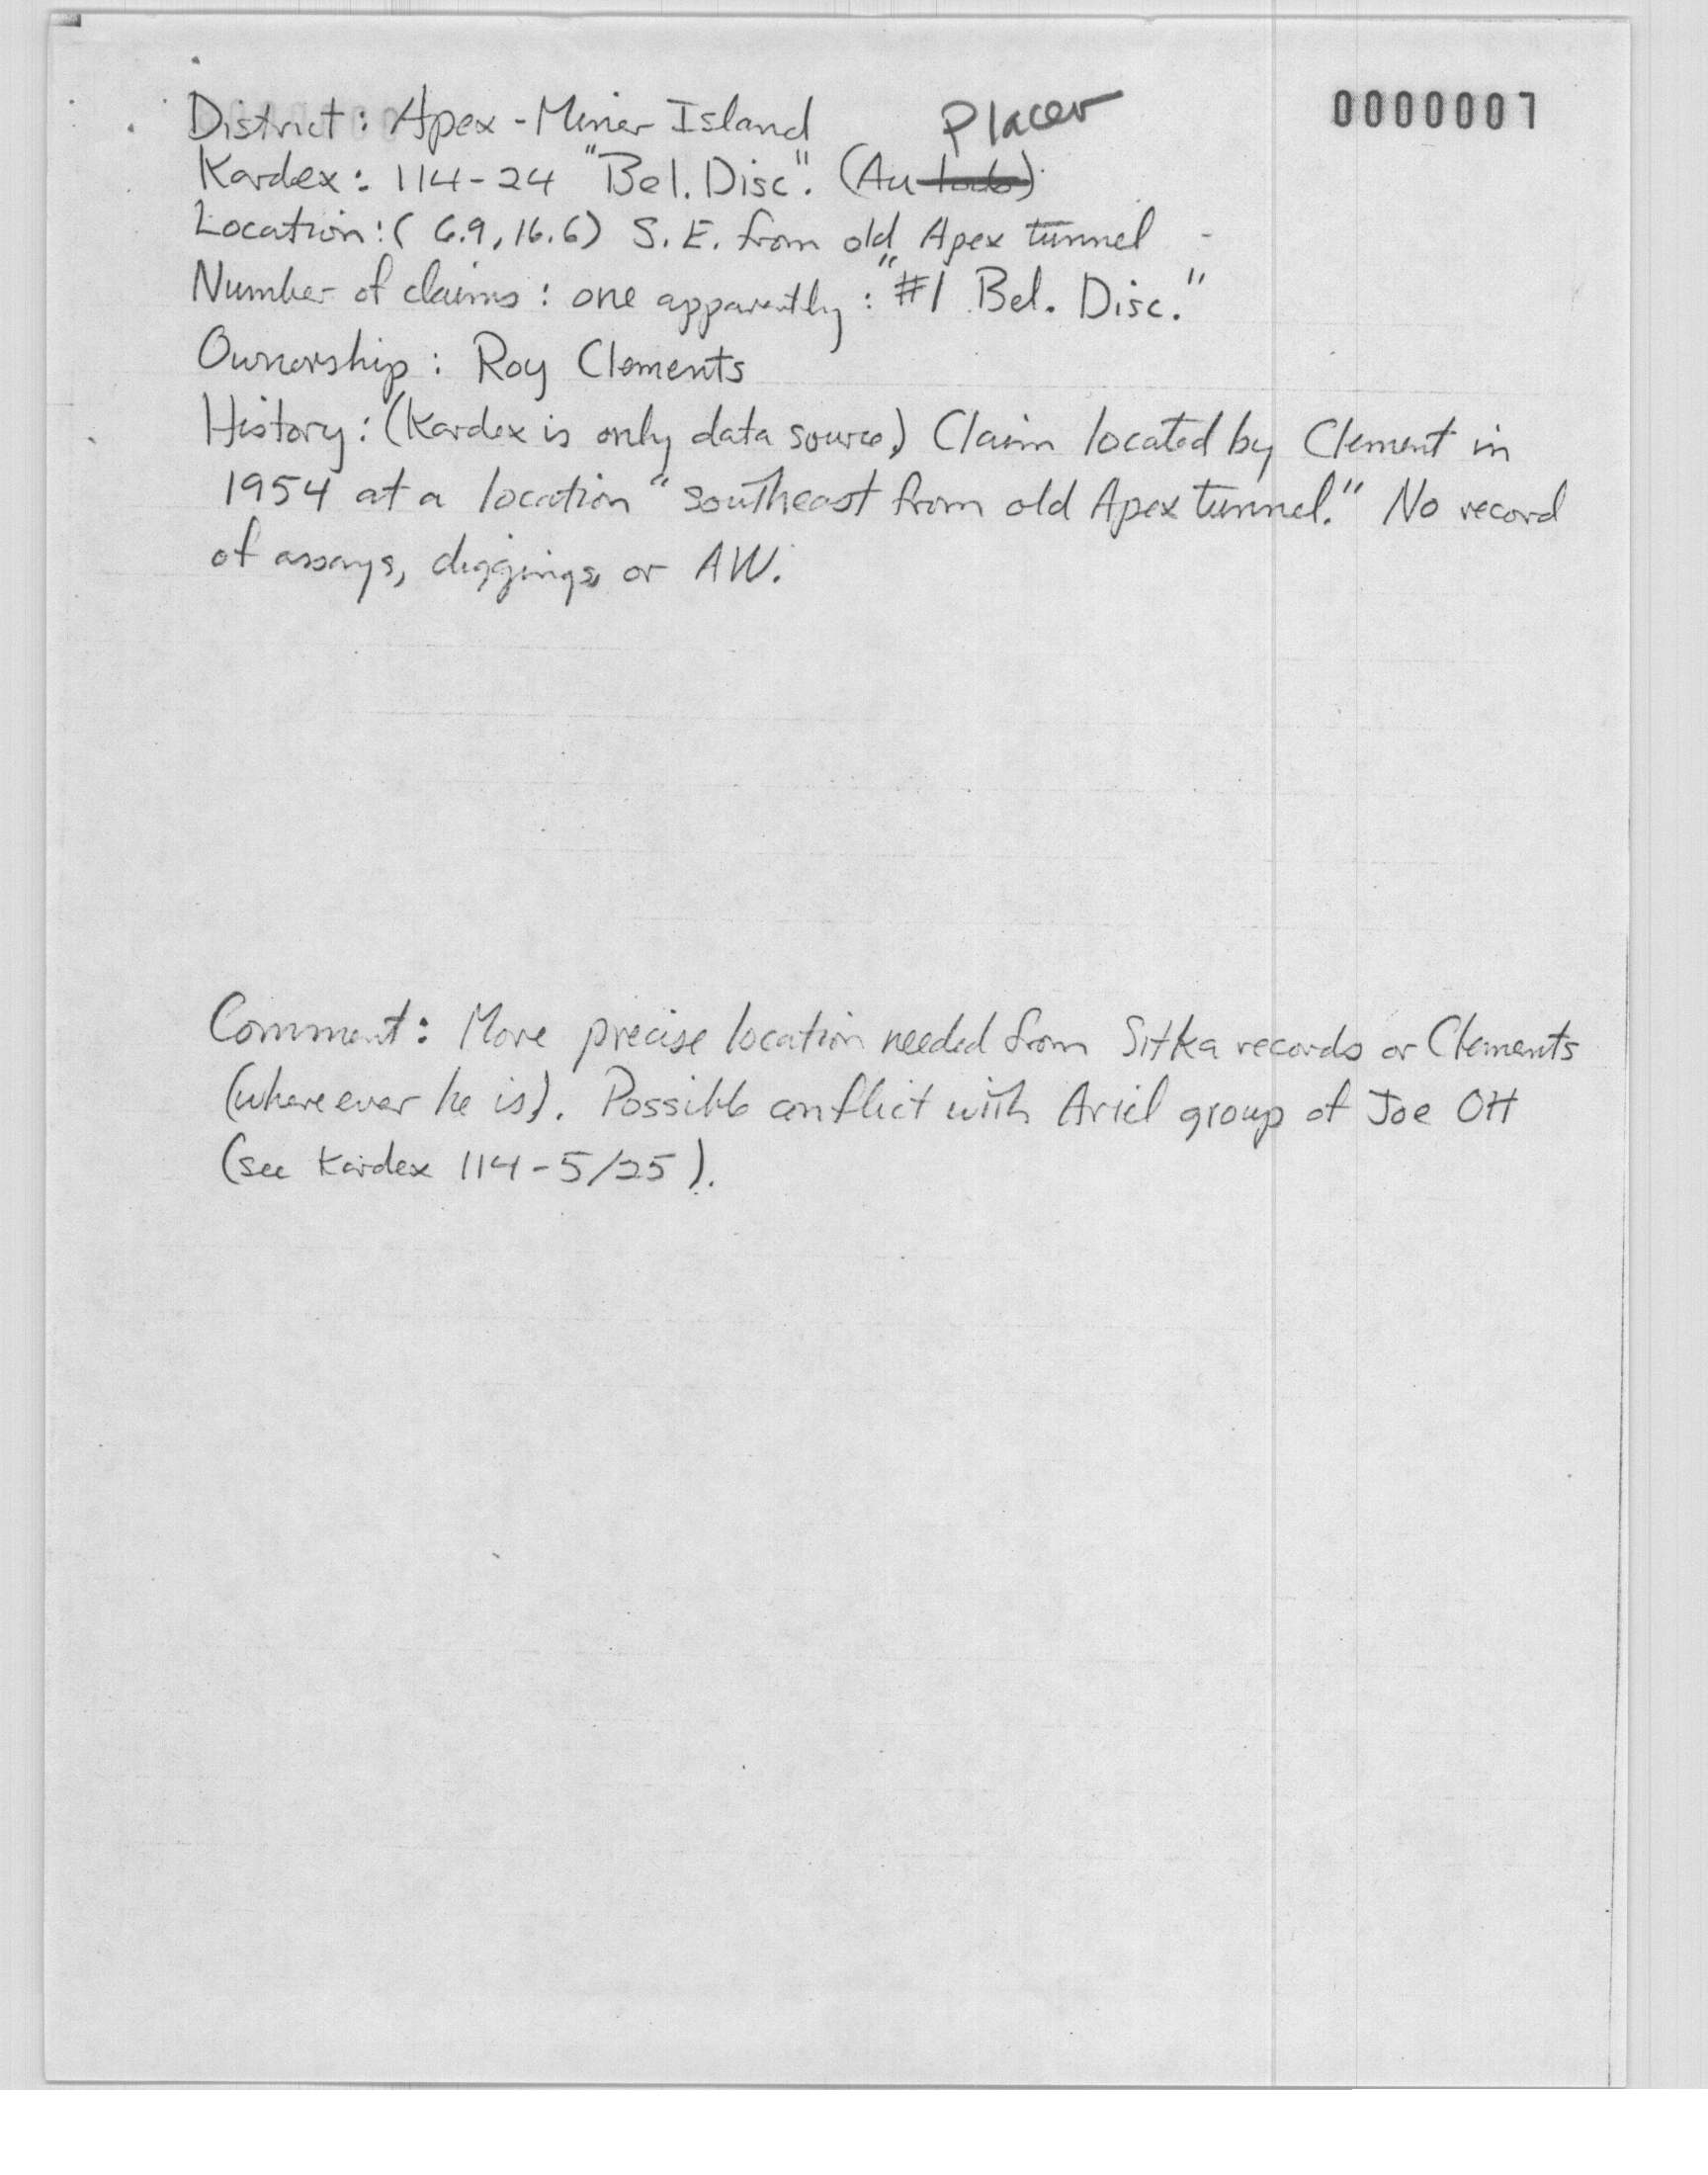 0000007
Placer
District: Apex - Miner Island
Kardex: 114-24 "Bel. Disc". (Au lode)
Location: (6.9, 16.6) S.E. from old Apex tunnel -
Number of claims: one apparently: "#1 Bel. Disc."
Ownership: Roy Clements
History: (Kardex is only data source) Claim located by Clement in
1954 at a location "southeast from old Apex tunnel." No record
of assays, diggings, or AW.
Comment: More precise location needed from Sitka records or Clements
(where ever he is). Possible conflict with Ariel group of Joe Ott
(see Kardex 114-5/25).